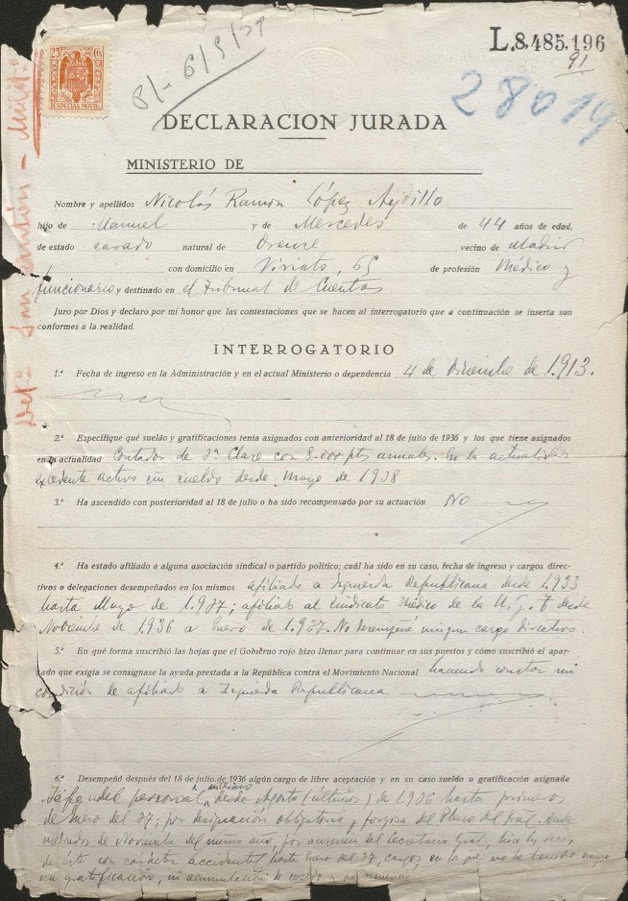 25 Cts
ESPECIAL MOVIL
8/- 6/3/
L.8.485.196
91
28019
DECLARACION JURADA
MINISTERIO DE
Nombre y apellidos Nicolás Ramón López Aydillo
hijo de Manuel y de Mercedes de 44 años de edad,
de estado casado natural de Orense vecino de Madrid
con domicilio en Viriato, 65 de profesión Médico y
funcionario y destinado en el Tribunal de Cuentas
Juro por Dios y declaro por mi honor que las contestaciones que se hacen al interrogatorio que a continuación se inserta son
conformes a la realidad.
INTERROGATORIO
1.ª Fecha de ingreso en la Administración y en el actual Ministerio o dependencia 4 de Diciembre de 1.913.
2.ª Especifique qué sueldo y gratificaciones tenía asignados con anterioridad al 18 de julio de 1936 y los que tiene asignados
en la actualidad Contador de 3ª Clase con 8.000 pts anuales. En la actualidad
excedente activo sin sueldo desde Mayo de 1938
3.ª Ha ascendido con posterioridad al 18 de julio o ha sido recompensado por su actuación NO
4.ª Ha estado afiliado a alguna asociación sindical o partido político; cuál ha sido en su caso, fecha de ingreso y cargos direc-
tivos o delegaciones desempeñados en los mismos afiliado a Izquierda Republicana desde 1.933
hasta Mayo de 1.937; afiliado al Sindicato Médico de la U.G.T desde
Noviembre de 1.936 a Enero de 1.937. No desempeñé ningun cargo directivo.
5.ª En qué forma suscribió las hojas que el Gobierno rojo hizo llenar para continuar en sus puestos y cómo suscribió el apar-
tado que exigía se consignase la ayuda prestada a la República contra el Movimiento Nacional haciendo constar mi
condición de afiliado a Izquierda Republicana
6.ª Desempeñó después del 18 de julio de 1936 algún cargo de libre aceptación y en su caso sueldo o gratificación asignada
Jefe del personal interino desde Agosto (últimos) de 1.936 hasta primeros
de Enero del 37; por designación obligatoria y forzosa del Pleno del Tral. desde
mediados de Noviembre del mismo año, por ausencia del Secretario Gral, hice las veces
de este con carácter accidental hasta Enero del 37, cargos en los que no he tenido
gratificación, ni acumulación de sueldo